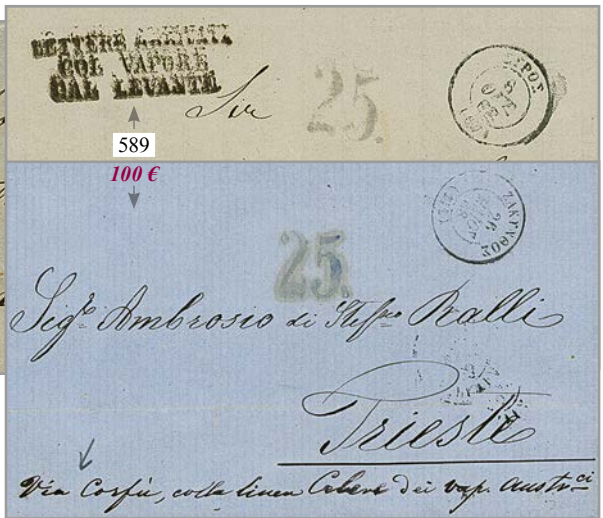 LETTERE ARRIVATE
COL VAPORE
DAL LEVANTE
Sir
25.
ΣΥΡΟΣ
589
100 €
ΖΑΚΥΝΘΟΣ
26
25.
Sigr. Ambrosio di Steffno Ralli
Trieste
Via Corfù, colla linea Celere dei vap. austrci